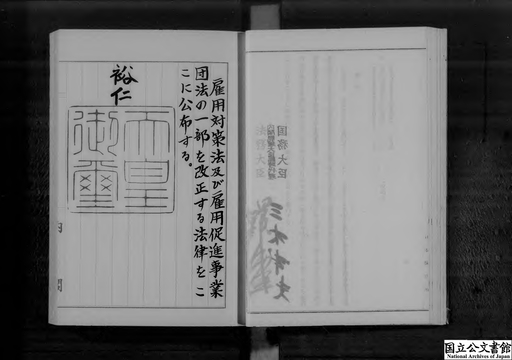 雇用対策法及び雇用促進事業
団法の一部を改正する法律をこ
こに公布する。
裕仁
天皇
御璽
国務大臣
三木武夫
国立公文書館
National Archives of Japan